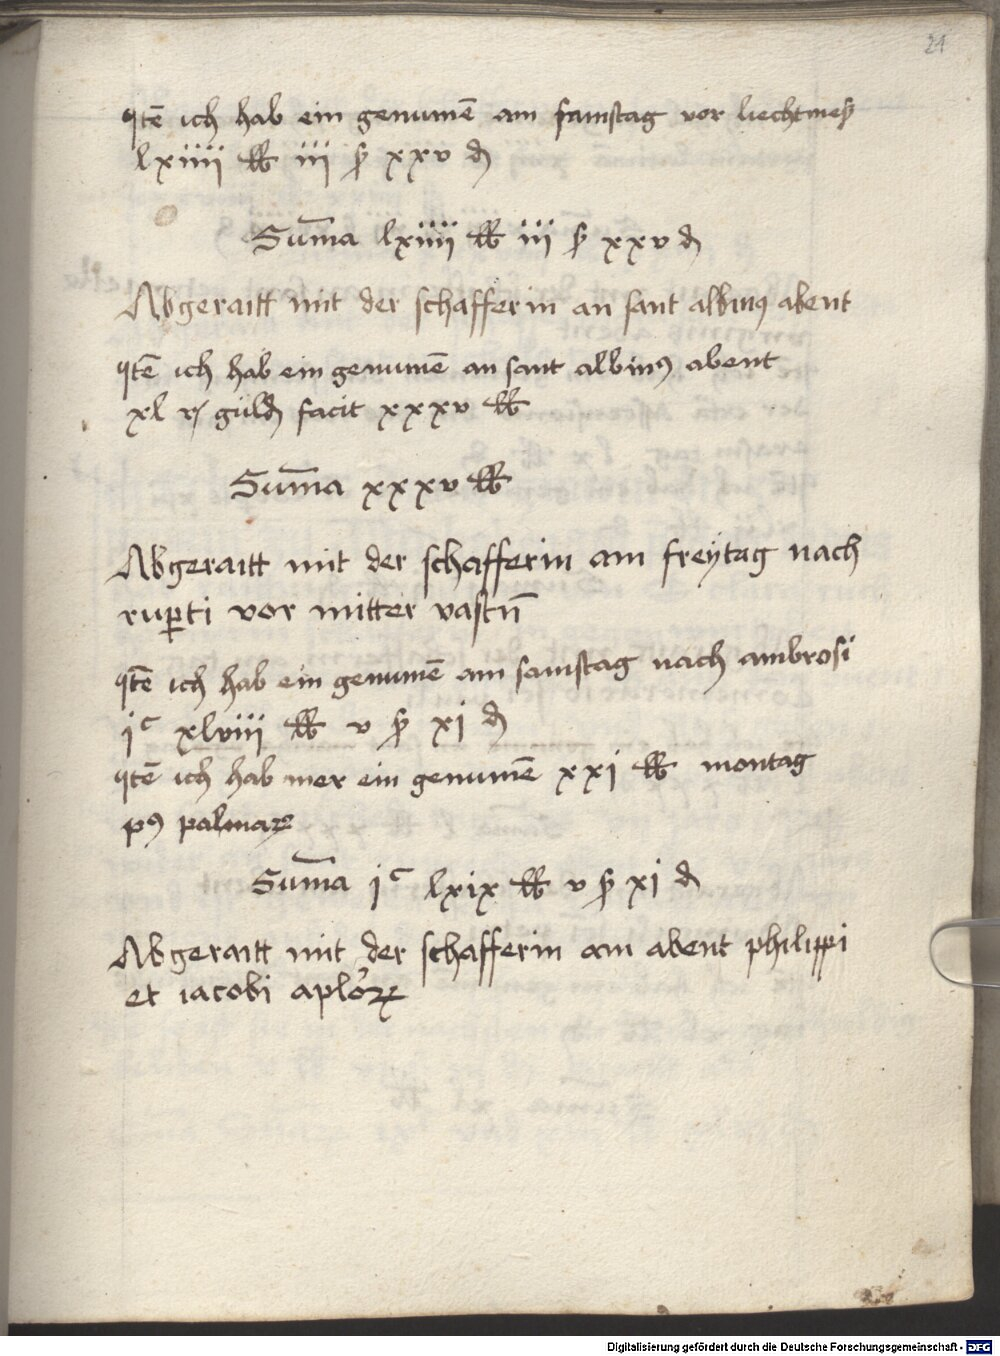 21
Itē ich hab ein genumē am samstag vor liechtmeß
lxiiii lb iii ß xxv d
Sum̄a lxiiii lb iii ß xxv d
Abgeraitt mit der schafferin an sant albinꝰ abent
Itē ich hab ein genumē an sant albinꝰ abent
xl r guld facit xxxv lb
Sum̄a xxxv lb
Abgeraitt mit der schafferin am freytag nach
ruꝑti vor mitter vastn̄
Itē ich hab ein genumē am samstag nach ambrosi
jc xlviii lb v ß xj d
Itē ich hab mer ein genumē xxj lb montag
pꝰ palmaꝝ
Sum̄a jc lxix lb v ß xj d
Abgeraitt mit der schafferin am abent philippi
et iacobi apl'oꝝ
Digitalisierung gefördert durch die Deutsche Forschungsgemeinschaft - DFG